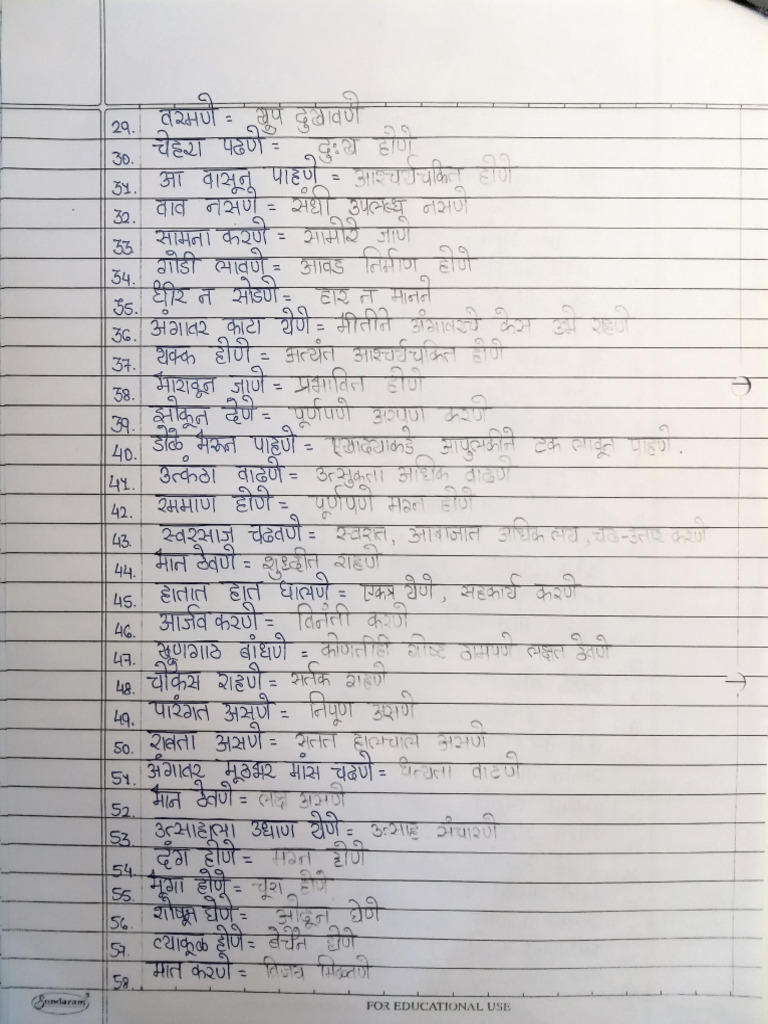 29. वरमणे = खुप दुखावणे
30. चेहरा पढणे = दुःख होणे
31. आ वासूनू पाहणे = आश्चर्यचकित होणे
32. वाव नसणे = संधी उपलब्ध नसणे
33. सामना करणे = सामोरे जाणे
34. गोडी लावणे = आवड निर्माण होणे
35. धीर न सोडणे = हार न मानने
36. अंगावर काटा येणे = भीतीने अंगावरचे केस उभे राहणे
37. थक्क होणे = अत्यंत आश्चर्यचकित होणे
38. भारावून जाणे = प्रभावित होणे
39. झोकून देणे = पूर्णपणे अरपण करणे
40. डोळे भरून पाहणे = एखाद्याकडे आपुलकीने टक लावून पाहणे.
41. उत्कंठा वाढणे = उत्सुकता अधिक वाढणे
42. रममाण होणे = पूर्णपणे मग्न होणे
43. स्वरसाज चढवणे = स्वरात, आवाजात अधिक लय, चढ-उतार करणे
44. भान ठेवणे = शुध्दीत राहणे
45. हातात हात घालणे = एकत्र येणे, सहकार्य करणे
46. आर्जव करणे = विनंती करणे
47. खुणगाठ बांधणे = कोणतीही गोष्ट ठामपणे लक्षत ठेवणे
48. चौकस राहणे = सर्तक राहणे
49. पारंगत असणे = निपूण असणे
50. राबता असणे = सतत हालचाल असणे
51. अंगावर मूठभर मांस चढणे = धन्यता वाटणे
52. भान ठेवणे = लक्ष असणे
53. उत्साहाला उधाण येणे = उत्साह संचारणे
54. दंग होणे = मग्न होणे
55. भूगा होणे = चूरा होणे
56. शोषून घेणे = ओढून घेणे
57. व्याकूळ होणे = बेचैन होणे
58. मात करणे = विजय मिळवणे
Sundaram
FOR EDUCATIONAL USE